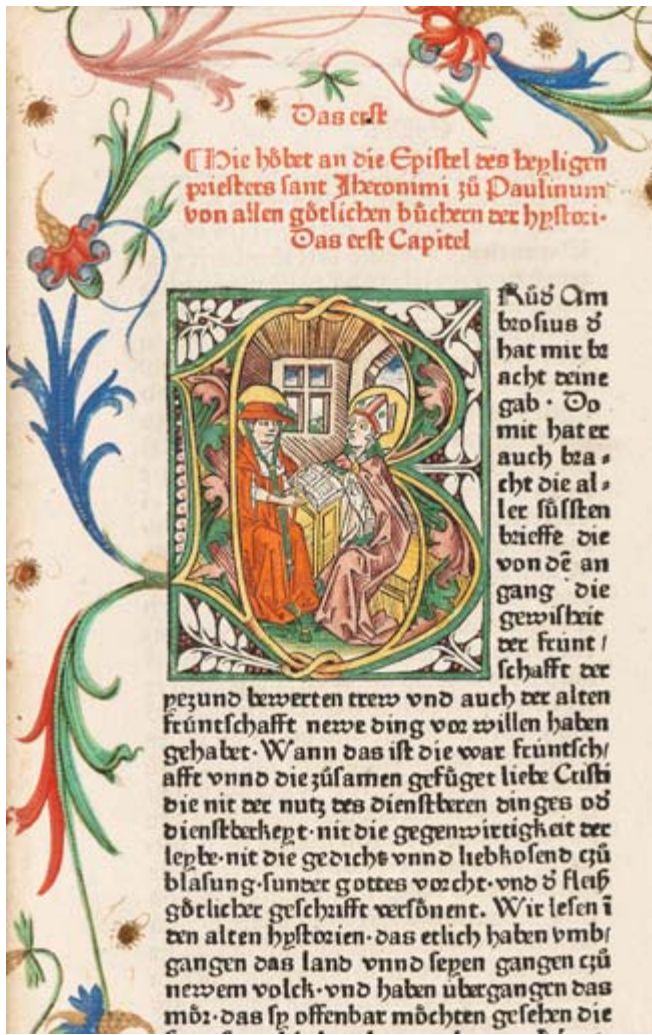 Das erst
¶Hie hôbet an die Epistel des heyligen
priesters sant Jheronimi zů Paulinum
von allen gôtlichen bůchern der hystori·
Das erst Capitel
Růd̉ Am
brosius d̉
hat mir br
acht deine
gab · Do
mit hat er
auch bra⸗
cht die al⸗
ler sůssten
brieffe die
von dē an
gang die
gewisheit
der frúnt /
schafft der
yezund bewerten trew vnd auch der alten
frúntschafft newe ding vor willen haben
gehabet · Wann das ist die war frúntsch/
afft vnnd die zůsamen gefůget liebe Cristi
die nit der nutz des dienstberen dinges od̉
dienstberkeyt · nit die gegenwirtigkeit der
leybe · nit die gedichs vnnd liebkosend czů
blasung · sunder gottes vorcht · vnd d̉ fleiß
gôtlicher geschrifft versônent. Wir lesen ī
den alten hystorien · das etlich haben vmb/
gangen das land vnnd seyen gangen czů
newem volck · vnd haben úbergangen das
môr · das sy offenbar môchten gesehen die